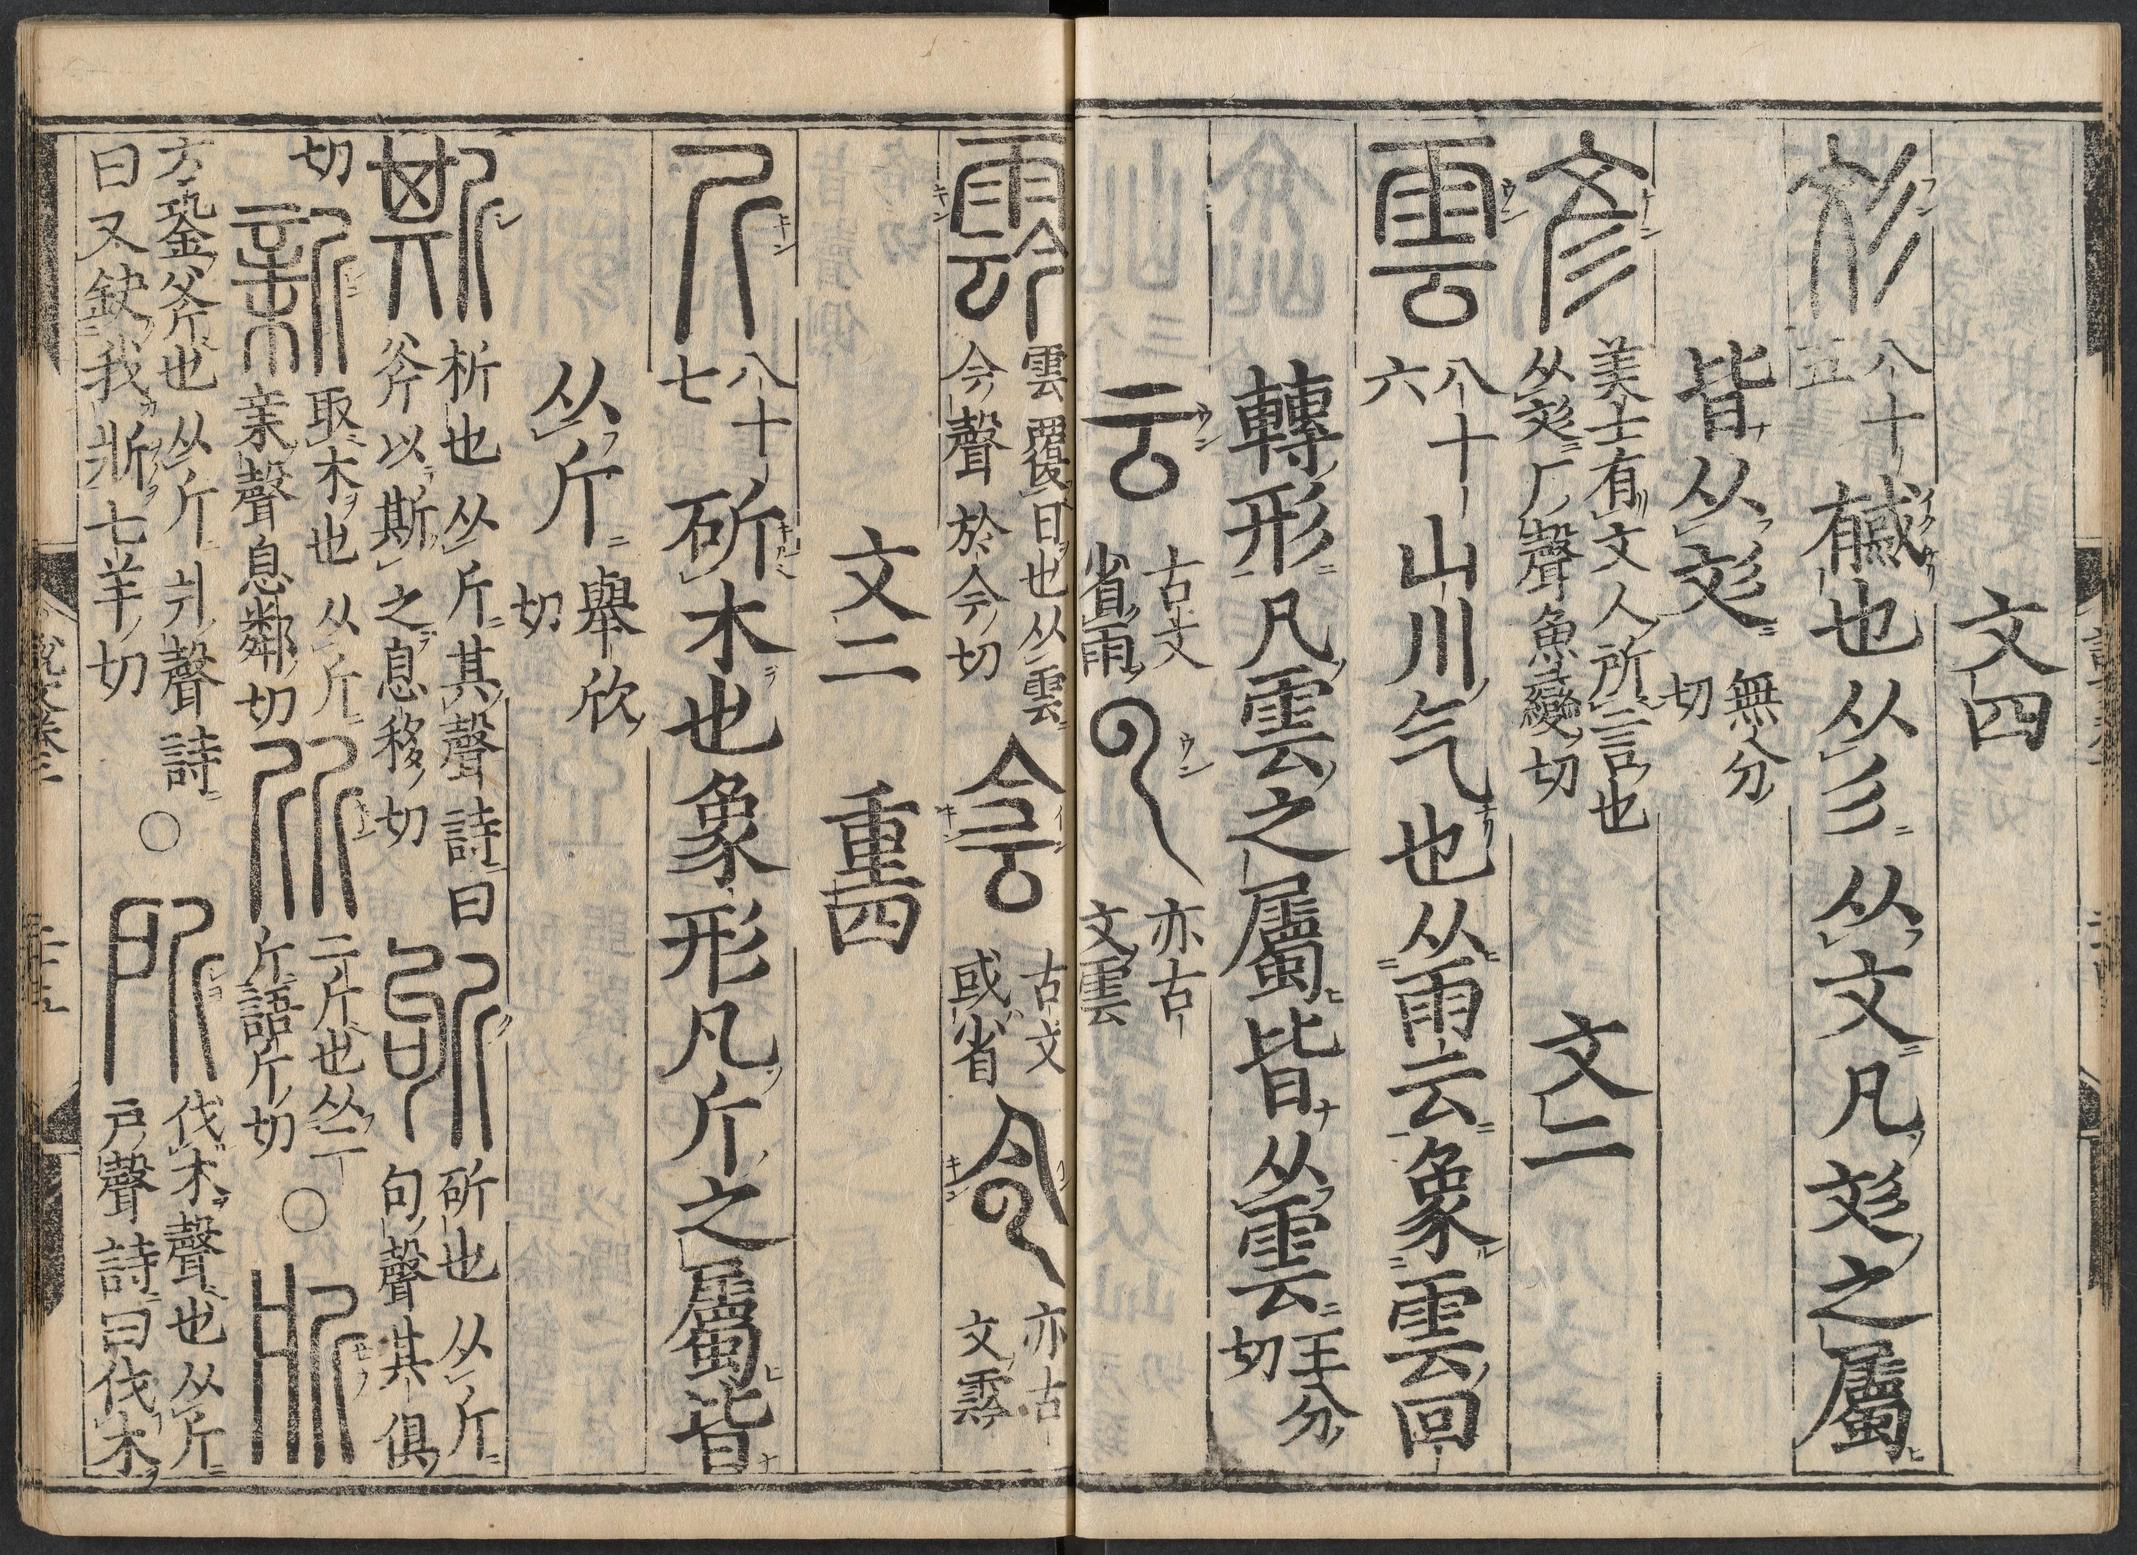 文四
彣 八十五 𢒈也从彡从文凡彣之屬
皆从彣 無分切
彥 美士有文人所言也从彣厂聲魚變切 文二
雲 八十六 山川气也从雨云象雲回
轉形凡雲之屬皆从雲 王分切
云 古文省雨 亦古文雲
霒 雲覆日也从雲今聲於今切 古文或省 亦古文霒
文二 重四
斤 八十七 斫木也象形凡斤之屬皆
从斤 舉欣切
斯 析也从斤其聲詩曰斧以斯之息移切 斪 斫也从斤句聲其俱
切 新 取木也从斤亲聲息鄰切 斦 二斤也从二斤語斤切 〇 斨
方銎斧也从斤爿聲詩曰又缺我斨七羊切 〇 所 伐木聲也从斤戶聲詩曰伐木
說文卷十二